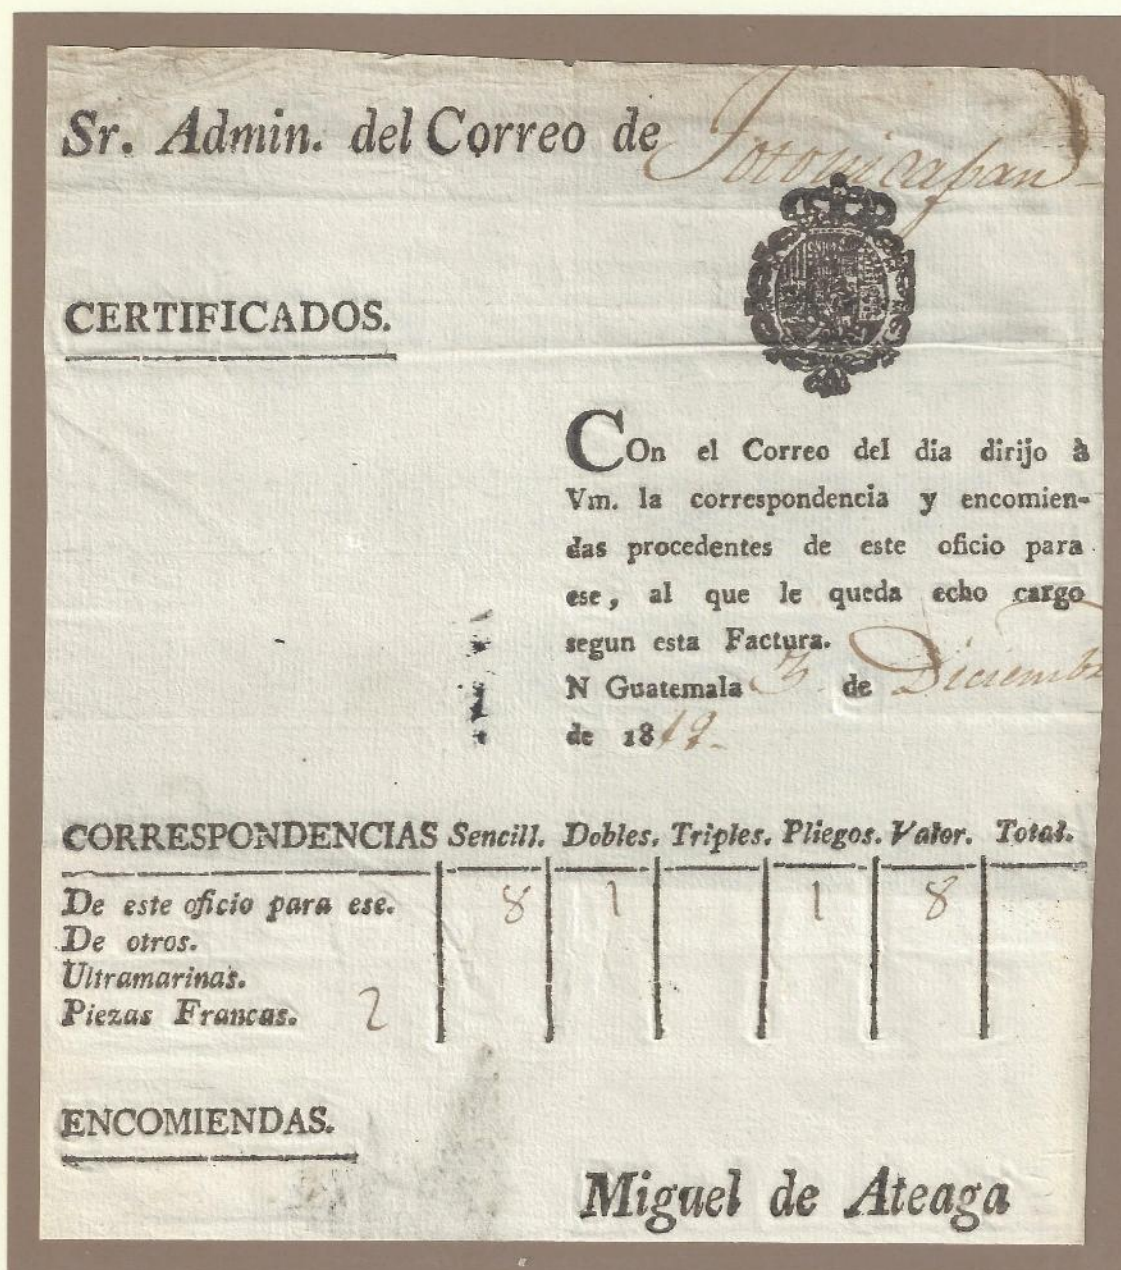 Sr. Admin. del Correo de Totonicapan
CERTIFICADOS.
COn el Correo del dia dirijo à
Vm. la correspondencia y encomien-
das procedentes de este oficio para
ese, al que le queda echo cargo
segun esta Factura.
N Guatemala 3 de Diciembre
de 1819.
CORRESPONDENCIAS Sencill. Dobles. Triples. Pliegos. Valor. Total.
De este oficio para ese. 8 1 1 8
De otros.
Ultramarinas.
Piezas Francas. 2
ENCOMIENDAS.
Miguel de Ateaga